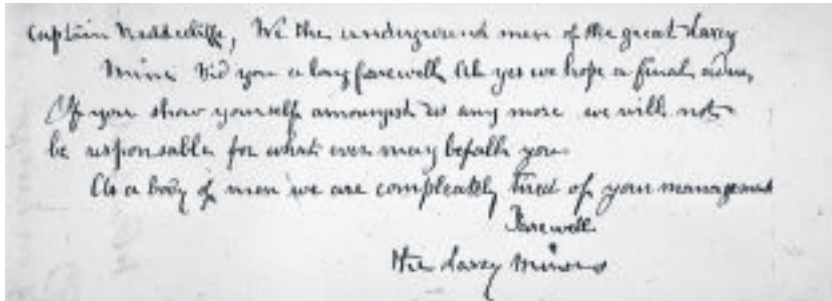 Captain Raddecliffe, We the underground men of the great Laxey
Mine Bid you a long farewell Ah yes we hope a final adieu,
If you show yourself amoungst us any more we will not
be responsable for what ever may befalls you.
As a body of men we are compleately tired of your management
Farewell
the Laxey Miners